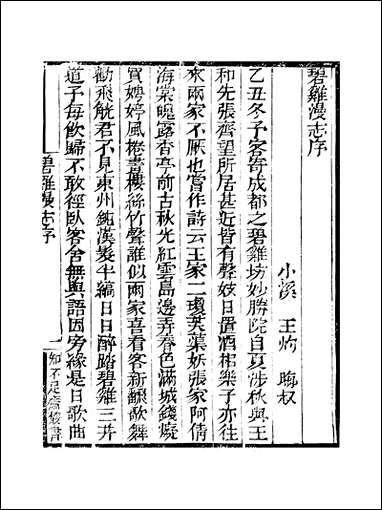 碧雞漫志序
小溪 王灼 晦叔
乙丑冬予客寄成都之碧雞坊妙勝院自夏涉秋與王
和先張齊望所居甚近皆有聲妓日置酒相樂予亦往
來兩家不厭也嘗作詩云王家二瓊芙蕖妖張家阿倩
海棠魄露香亭前占秋光紅雲島邊弄春色滿城錢癡
買娉婷風捲畫樓絲竹聲誰似兩家喜看客新翻歌舞
勸飛觥君不見東州鈍漢髮半縞日日醉踏碧雞三井
道予每飲歸不敢徑臥客舍無與語因旁緣是日歌曲
碧雞漫志序
知不足齋叢書